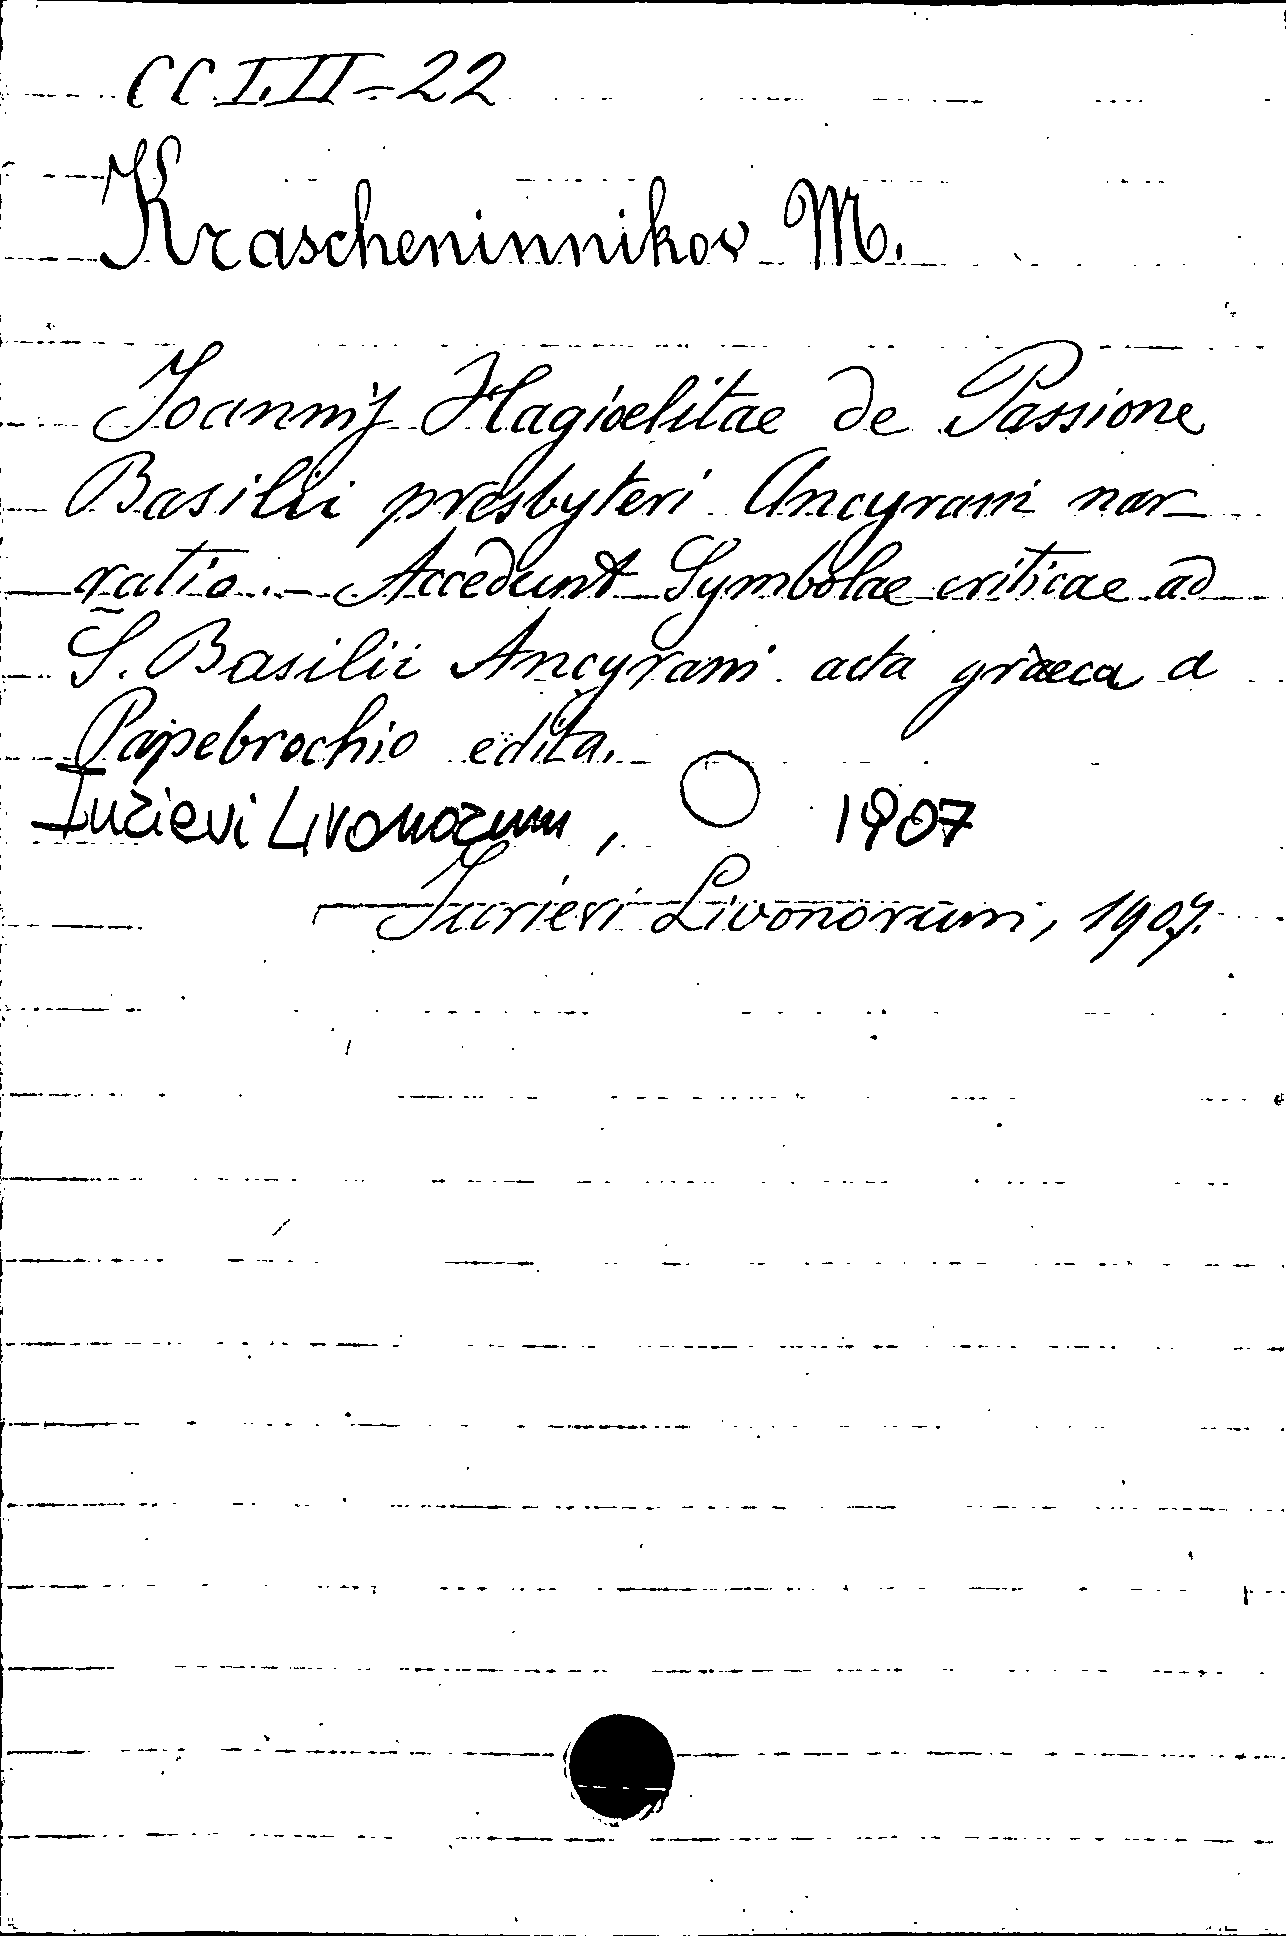 CC I.II-22
Krascheninnikov M.
Joannis Hagioelitae de Passione
Basilii presbyteri Ancyrani nar-
ratio. - Accedunt Symbolae criticae ad
S. Basilii Ancyrani acta graeca a
Papebrochio edita.
Iurievi Livonorum, 1907
Jurievi Livonorum, 1907.